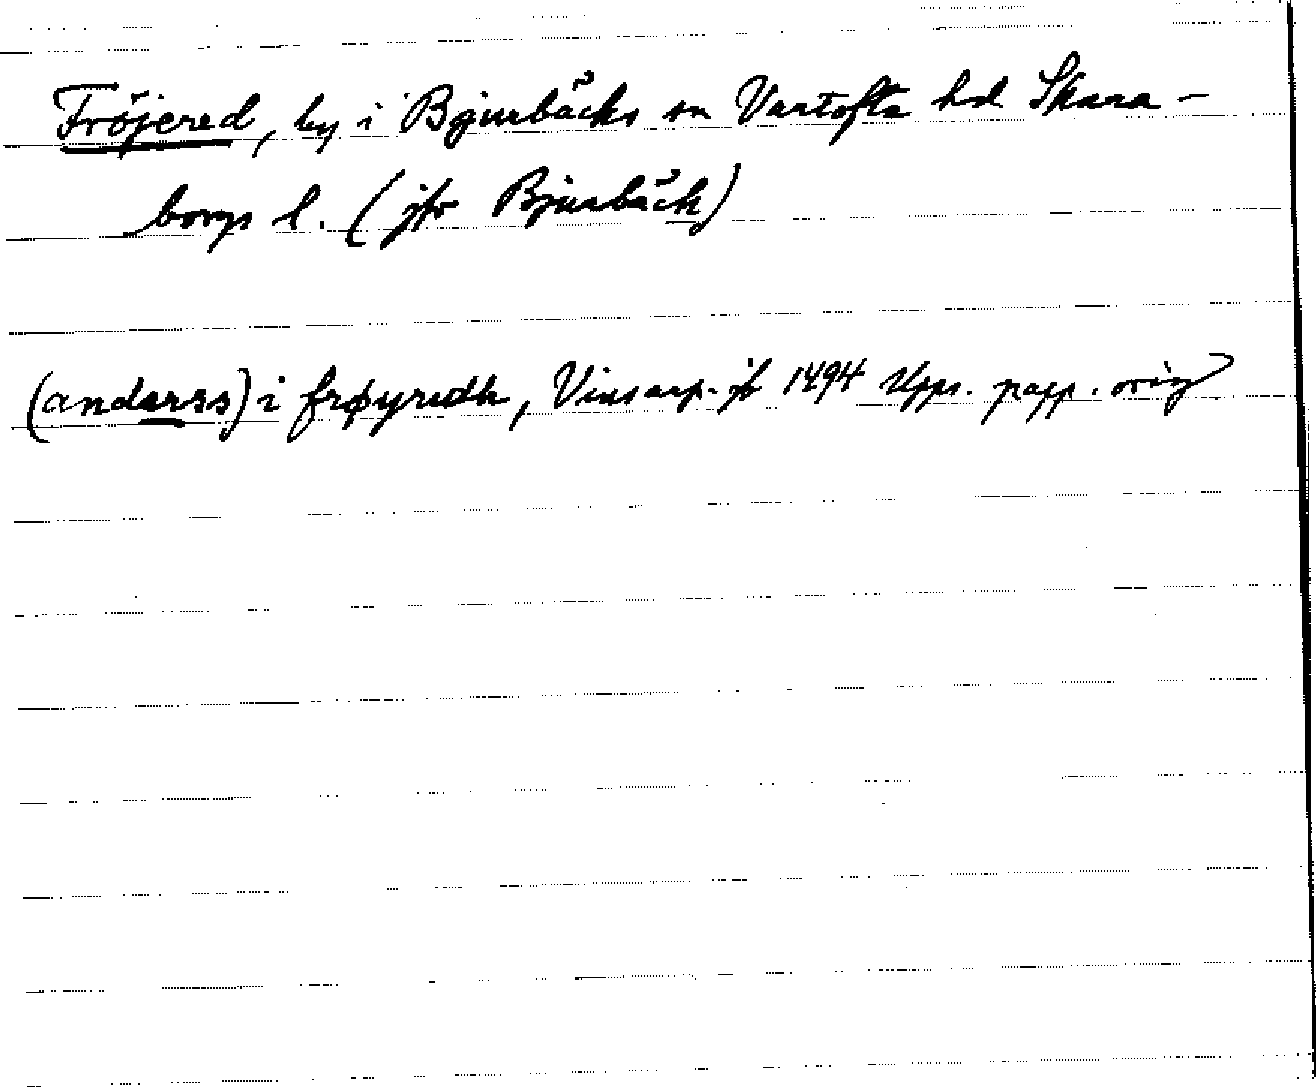 Fröjered, by i Bjurbäcks sn Vartofta hd Skara-
borgs l. (jfr Bjurbäck)
(anderss) i frøyredh, Vinsarp. jb 1494 Upps. papp. orig